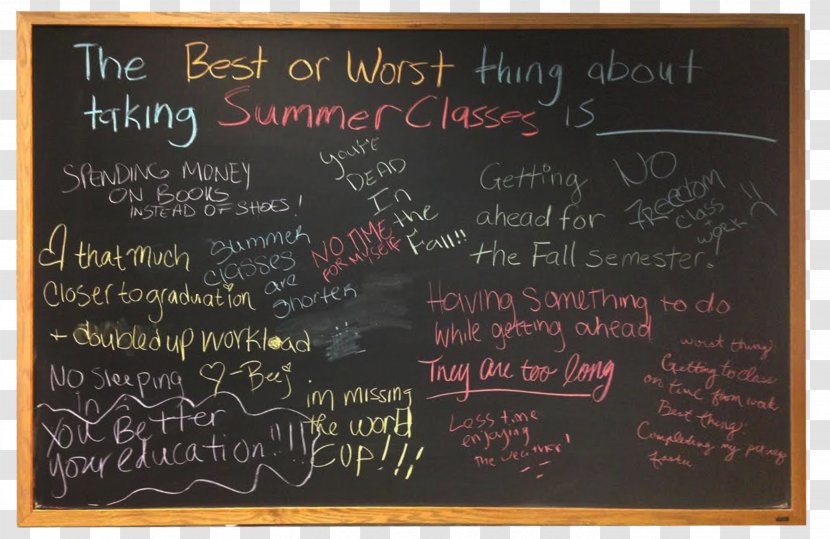 The Best or Worst thing about
taking Summer Classes is ________
SPENDING MONEY
ON BOOKS
INSTEAD OF SHOES!
You're
DEAD
In
the
Fall!!
Getting
ahead for
the Fall semester!
NO
FREEDOM
Class
work
Summer
classes
are
shorter
NO TIME
FOR MYSELF
that much
closer to graduation
+ doubled up workload
♡-Beej
Having something to do
while getting ahead
They are too long
worst thing:
Getting to class
on time from work
Best thing:
Completing my
NO Sleeping
in
You Better
your education!!!!
im missing
the world
CUP!!!
Less time
enjoying
THE WEATHER!